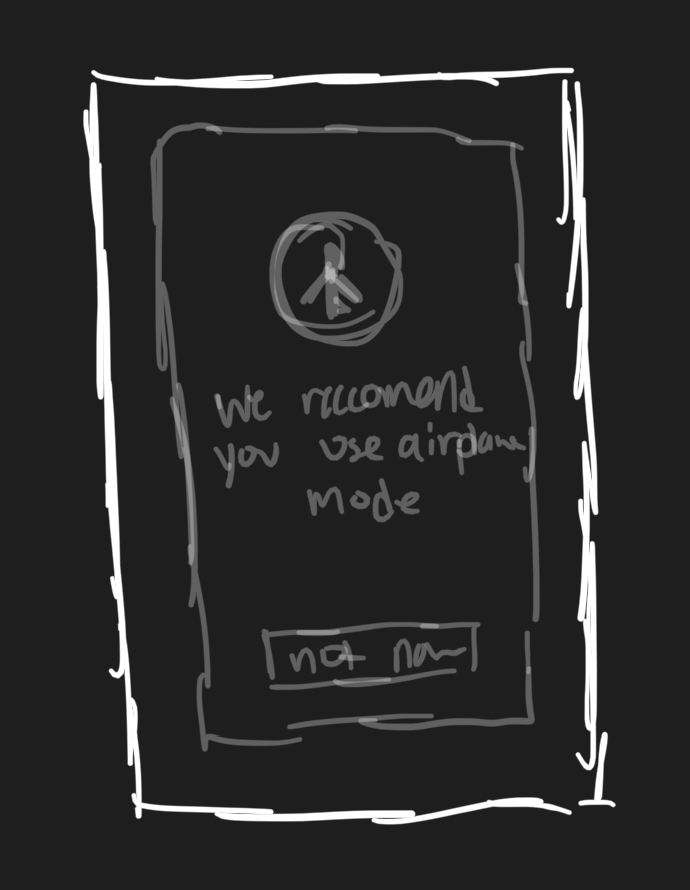 We riccomend
you use airplane
mode
not now